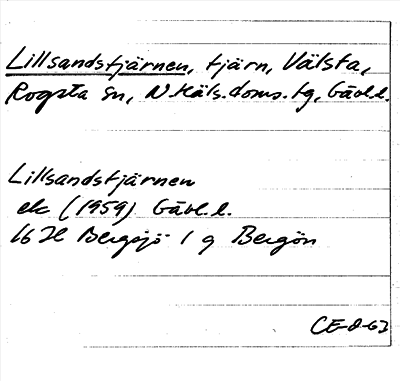 Lillsandstjärnen, tjärn, Välsta,
Rogsta sn, N.Häls.doms.tg, Gävl.l.
Lillsandstjärnen
ek (1959) Gävl.l.
16 H Bergsjö 1 g Bergön